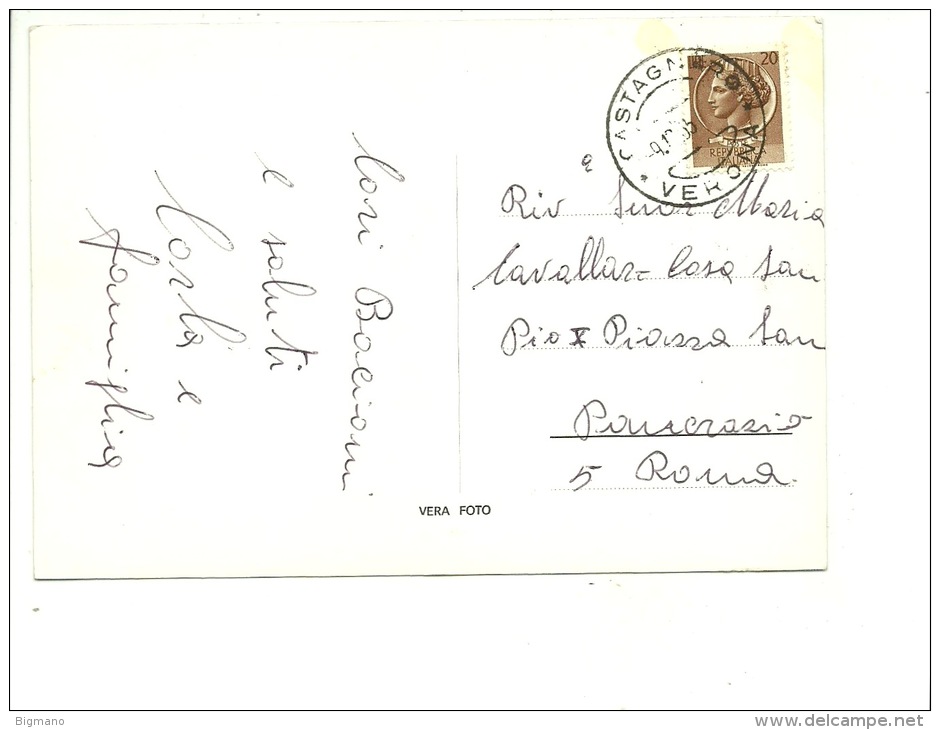 Cari Bacioni
e saluti
Carla e
famiglia
20
CASTAGNARO
VERONA
REPUBBLICA
ITALIANA
Riv Suor Maria
Cavallar= Casa San
Pio X Piazza San
Pancrazio
5 Roma
VERA FOTO
Bigmano
delcampe.net